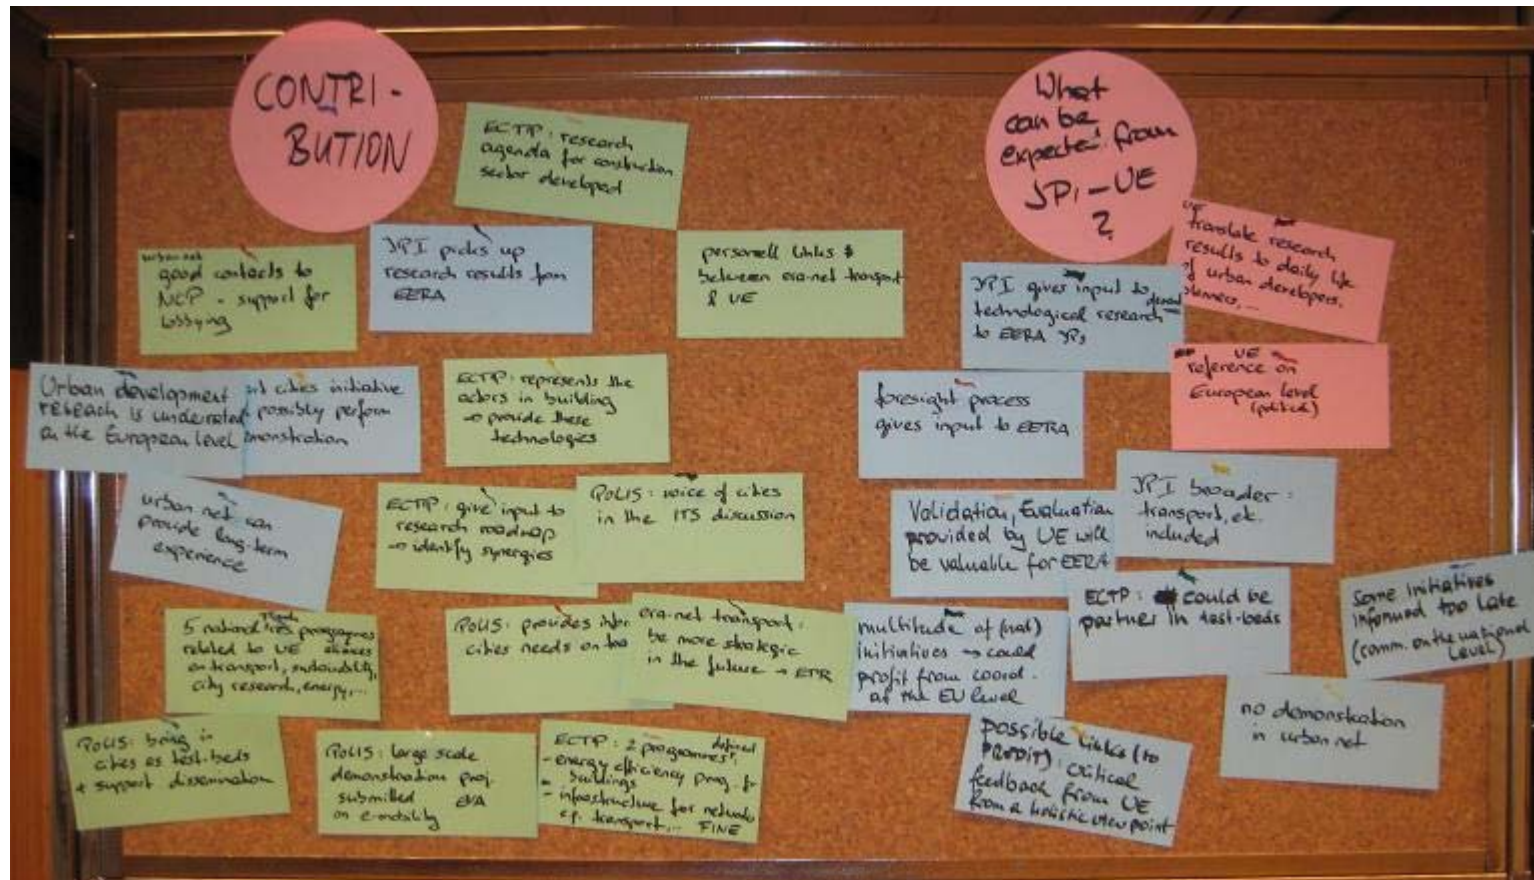 CONTRI-
BUTION
ECTP: research
agenda for construction
sector developed
urban net
good contacts to
NCP - support for
lobbying
JPI picks up
research results from
EERA
personell links
between era-net transport
& UE
Urban development
reseach is underrated
on the European level
cities initiative
possibly perform
ECTP: represents the
actors in building
→ provide these
technologies
urban net can
provide long-term
experience
ECTP: give input to
research roadmap
→ identify synergies
POLIS: voice of cities
in the ITS discussion
5 national programmes
related to UE
on transport, sustainability,
city research, energy,...
POLIS: provides
cities needs on
era-net transport:
be more strategic
in the future → ETR
POLIS: bring in
cities as test-beds
+ support dissemination
POLIS: large scale
demonstration proj.
submitted EVA
on e-mobility
ECTP: 2 programmes defined
- energy efficiency prog. for
buildings
- infrastructure for networks
e.g. transport,... FINE
What
can be
expected from
JPI-UE
?
UE
translate research
results to daily life
of urban developers,
JPI gives input to
technological research
to EERA JPs
UE
reference on
European level
(political)
foresight process
gives input to EERA
Validation, Evaluation
provided by UE will
be valuable for EERA
JPI broader:
transport, etc.
included
multitude of (nat)
initiatives → could
profit from coord.
at the EU level
ECTP: could be
partner in test-beds
Some initiatives
informed too late
(comm. on the national
level)
possible links (to
PRODIT): critical
feedback from UE
from a holistic viewpoint
no demonstration
in urban net